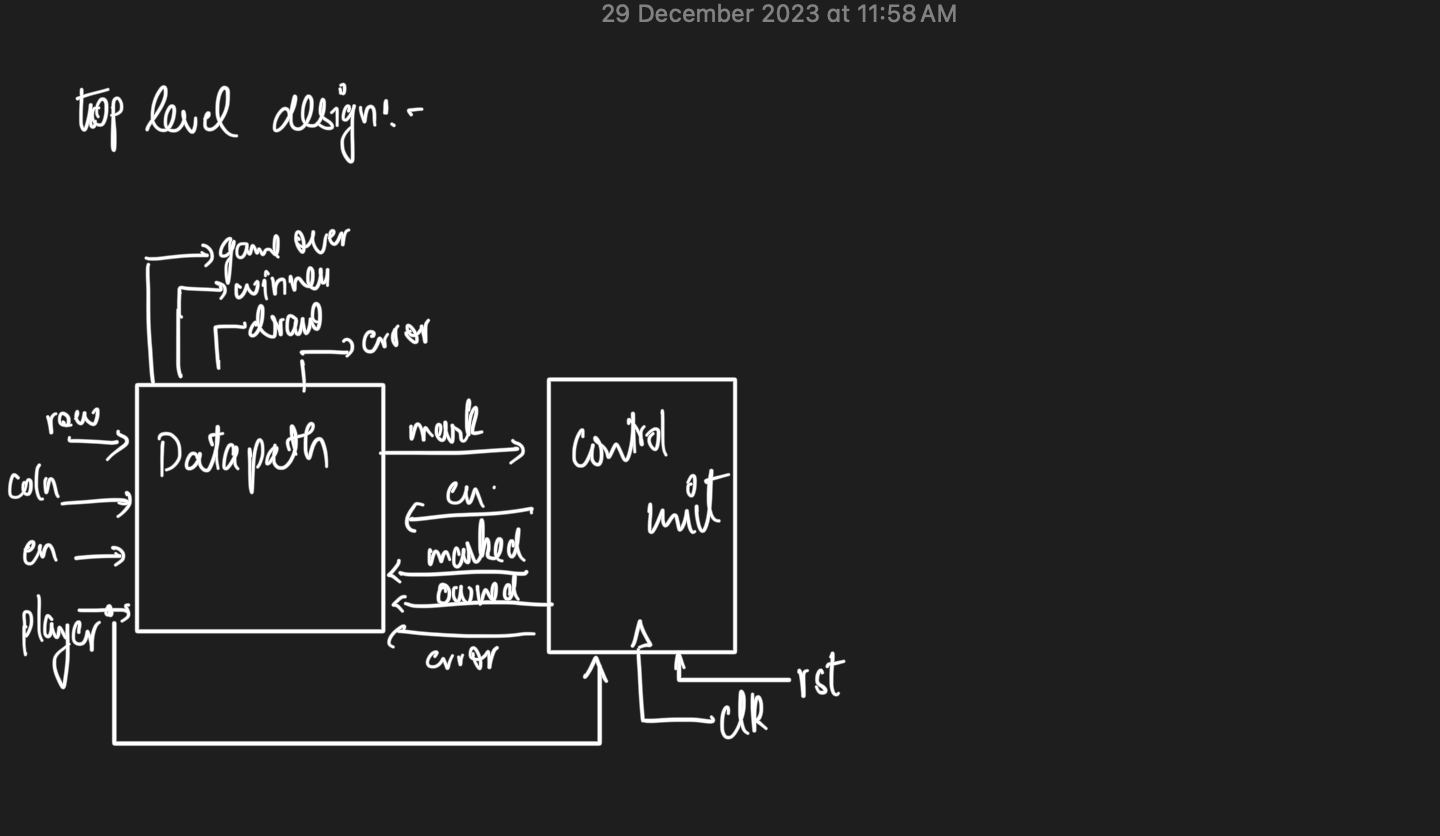 29 December 2023 at 11:58 AM
top level design:-
game over
winner
draw
error
row
coln
en
player
Datapath
mark
en.
marked
owned
error
control
unit
rst
clk